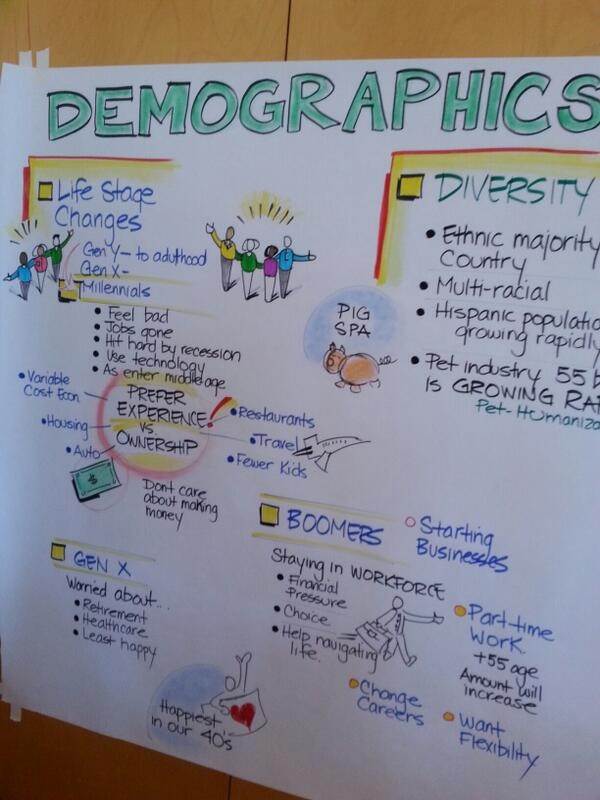 DEMOGRAPHICS
Life Stage
Changes
Gen Y- to aduthood
Gen X-
Millennials
• Feel bad
• Jobs gone
• Hit hard by recession
• Use technology
• As enter middle age
PREFER
EXPERIENCE!
VS
OWNERSHIP
• Variable
Cost Econ
• Housing
• Auto
• Restaurants
• Travel
• Fewer Kids
$
Dont care
about making
money
GEN X
Worried about...
• Retirement
• Healthcare
• Least happy
Happiest
in our 40's
BOOMERS
Staying in WORKFORCE
• Financial
Pressure
• Choice
• Help navigating
life.
Starting
Businesses
Part-time
Work
+55 age
Amount will
increase
Change
Careers
Want
Flexibility
DIVERSITY
• Ethnic majority
Country
• Multi-racial
• Hispanic
growing rapidly
• Pet industry 55
IS GROWING
Pet-
PIG
SPA